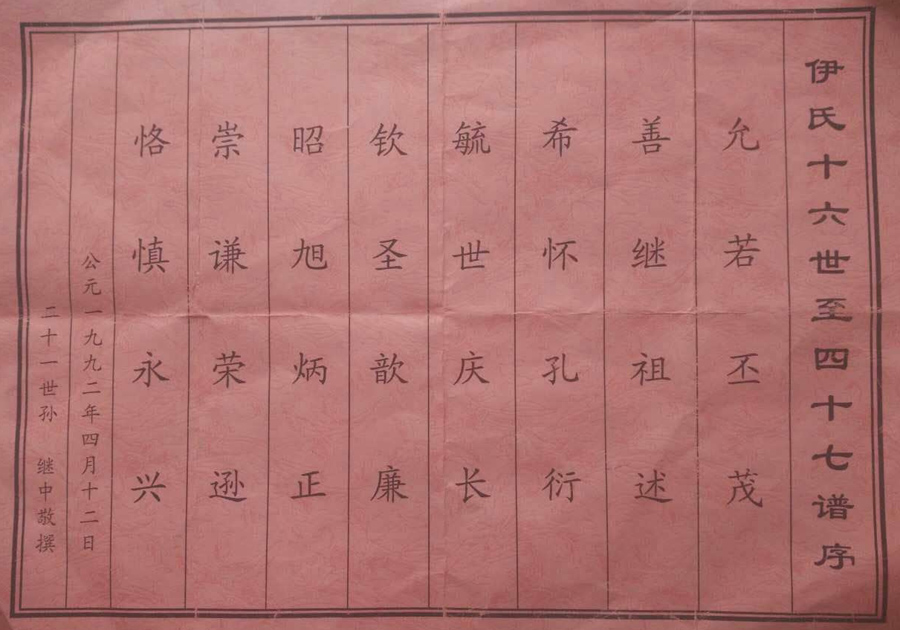 伊氏十六世至四十七谱序
允若丕茂
善继祖述
希怀孔衍
毓世庆长
钦圣歆廉
昭旭炳正
崇谦荣逊
恪慎永兴
公元一九九二年四月十二日
二十一世孙 继中敬撰